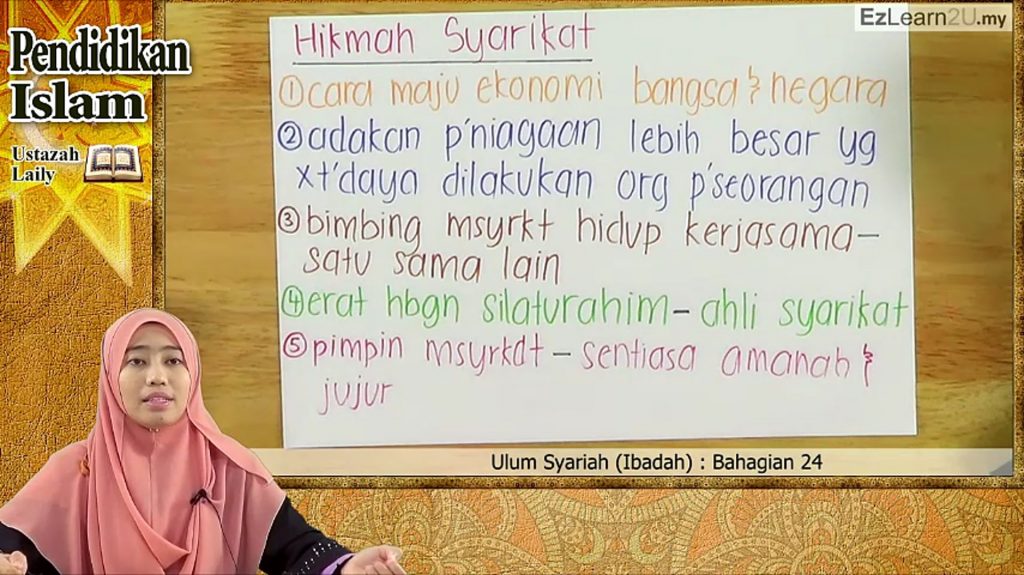 EzLearn2U.my
Pendidikan
Islam
Ustazah
Laily
Hikmah Syarikat
① cara maju ekonomi bangsa & negara
② adakan p'niagaan lebih besar yg
xt'daya dilakukan org p'seorangan
③ bimbing msyrkt hidup kerjasama –
satu sama lain
④ erat hbgn silaturahim – ahli syarikat
⑤ pimpin msyrkat – sentiasa amanah &
jujur
Ulum Syariah (Ibadah) : Bahagian 24